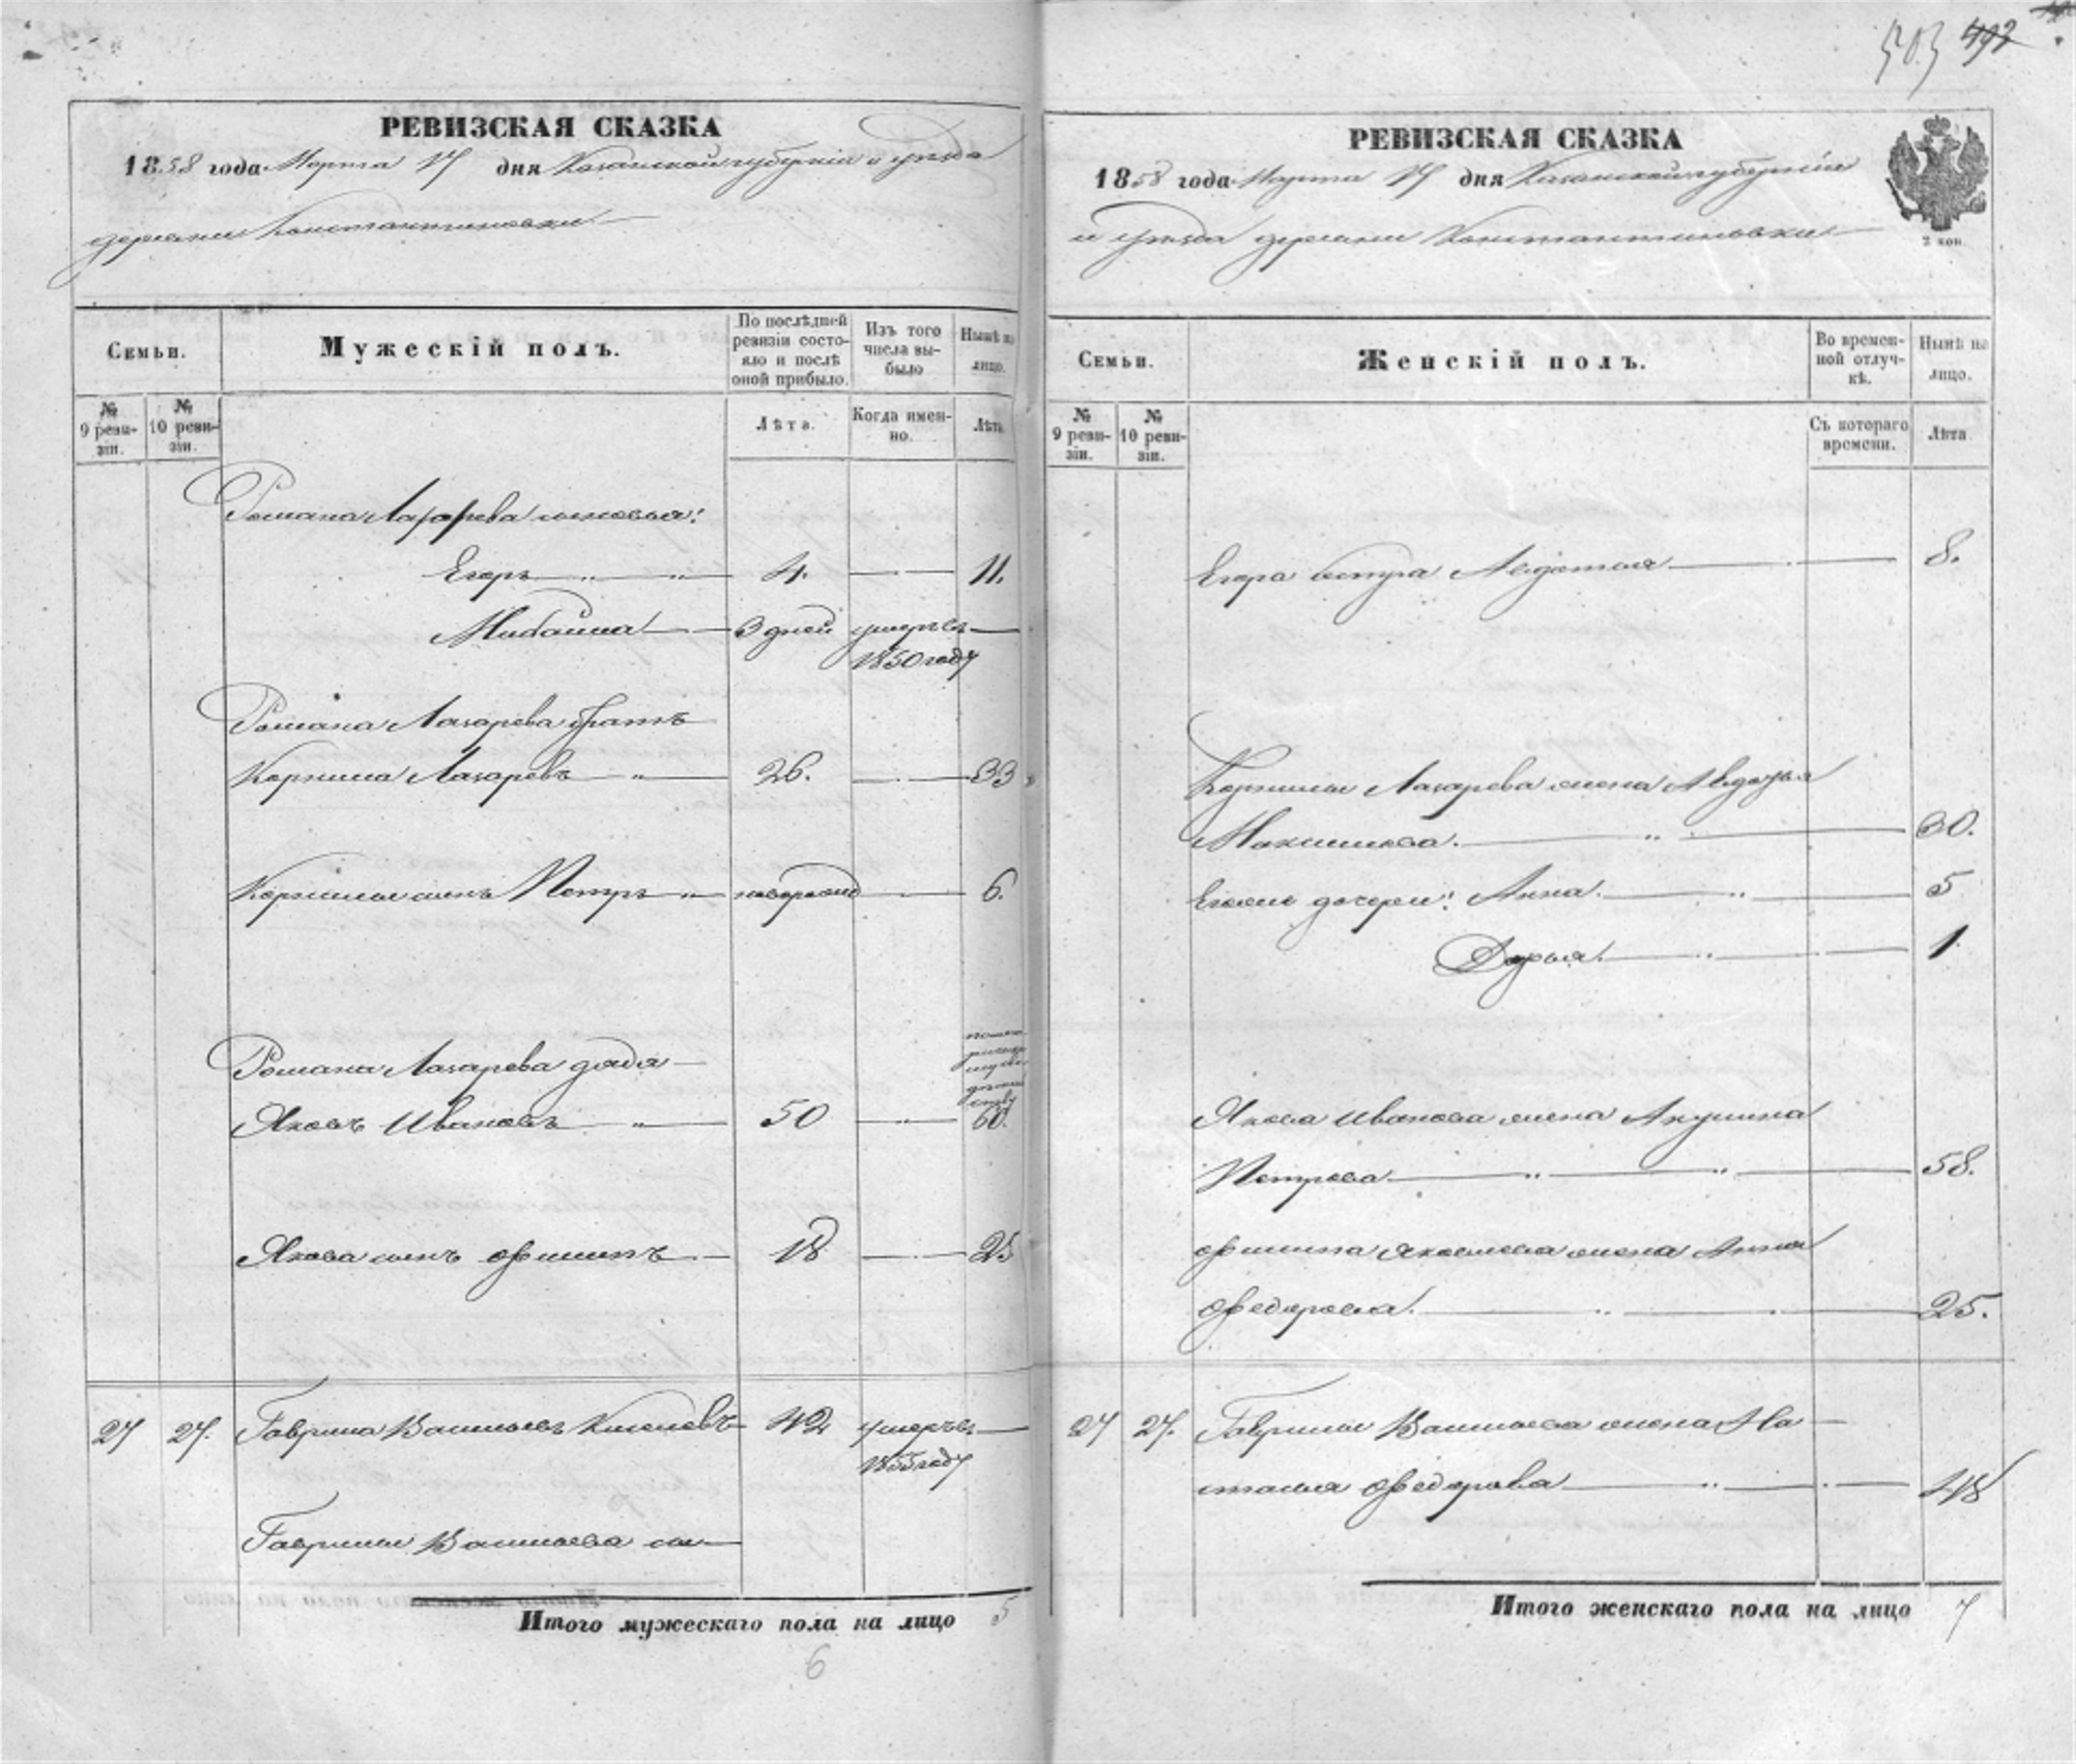 503 492
РЕВИЗСКАЯ СКАЗКА
1858 года Марта 17 дня Казанской губернiи и уѣзда
деревни Константиновки
Семьи.
Мужескiй полъ.
По послѣдней ревизiи состояло и послѣ оной прибыло.
Изъ того числа выбыло
Нынѣ на лицо.
№ 9 ревизiи.
№ 10 ревизiи.
Лѣта.
Когда именно.
Лѣта.
Романа Лазарева сыновья:
Егоръ 4. 11.
Михайла 3 дней умеръ въ
1850 году
Романа Лазарева братъ
Корнила Лазаревъ 26. 33
Корнилы сынъ Петръ новорожд 6.
Романа Лазарева дядя
Яковъ Ивановъ 50 60.
Якова сынъ Филипъ 18 25
27 27. Гаврила Васильевъ Киселевъ 42 умеръ въ
1855 году
Гаврилы Васильева сы-
Итого мужескаго пола на лицо 5
6
РЕВИЗСКАЯ СКАЗКА
1858 года Марта 17 дня Казанской губернiи
и уѣзда деревни Константиновки
2 коп.
Семьи.
Женскiй полъ.
Во временной отлучкѣ.
Нынѣ на лицо.
№ 9 ревизiи.
№ 10 ревизiи.
Съ котораго времени.
Лѣта.
Егора сестра Авдотья 8.
Корнилы Лазарева жена Авдотья
Максимова. 30.
Егоже дочери: Анна. 5
Дарья. 1
Якова Иванова жена Акулина
Петрова 58.
Филипа Яковлева жена Анна
Федорова. 25.
27 27. Гаврилы Васильева жена На-
талья Федорова 48
Итого женскаго пола на лицо 7